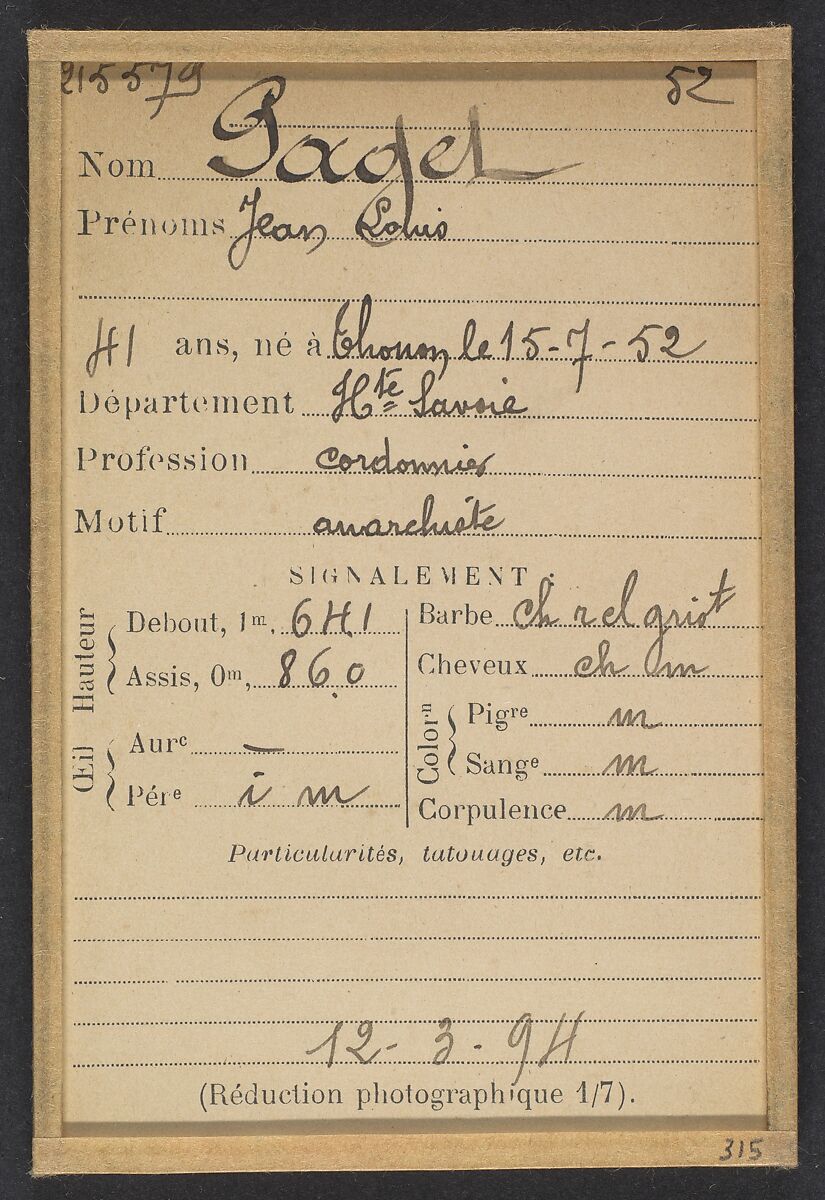 215579 52
Nom Paget
Prénoms Jean Louis
41 ans, né à Thonon le 15-7-52
Département Hte Savoie
Profession cordonnier
Motif anarchiste
SIGNALEMENT :
Hauteur
Debout, 1m, 641
Assis, 0m, 860
Œil
Aurc —
Pére i m
Barbe ch r cl
Cheveux ch m
Colorn
Pigre m
Sange m
Corpulence m
Particularités, tatouages, etc.
12-3-94
(Réduction photographique 1/7).
315